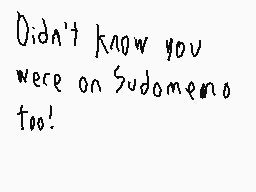 Didn't know you
were on Sudomemo
too!